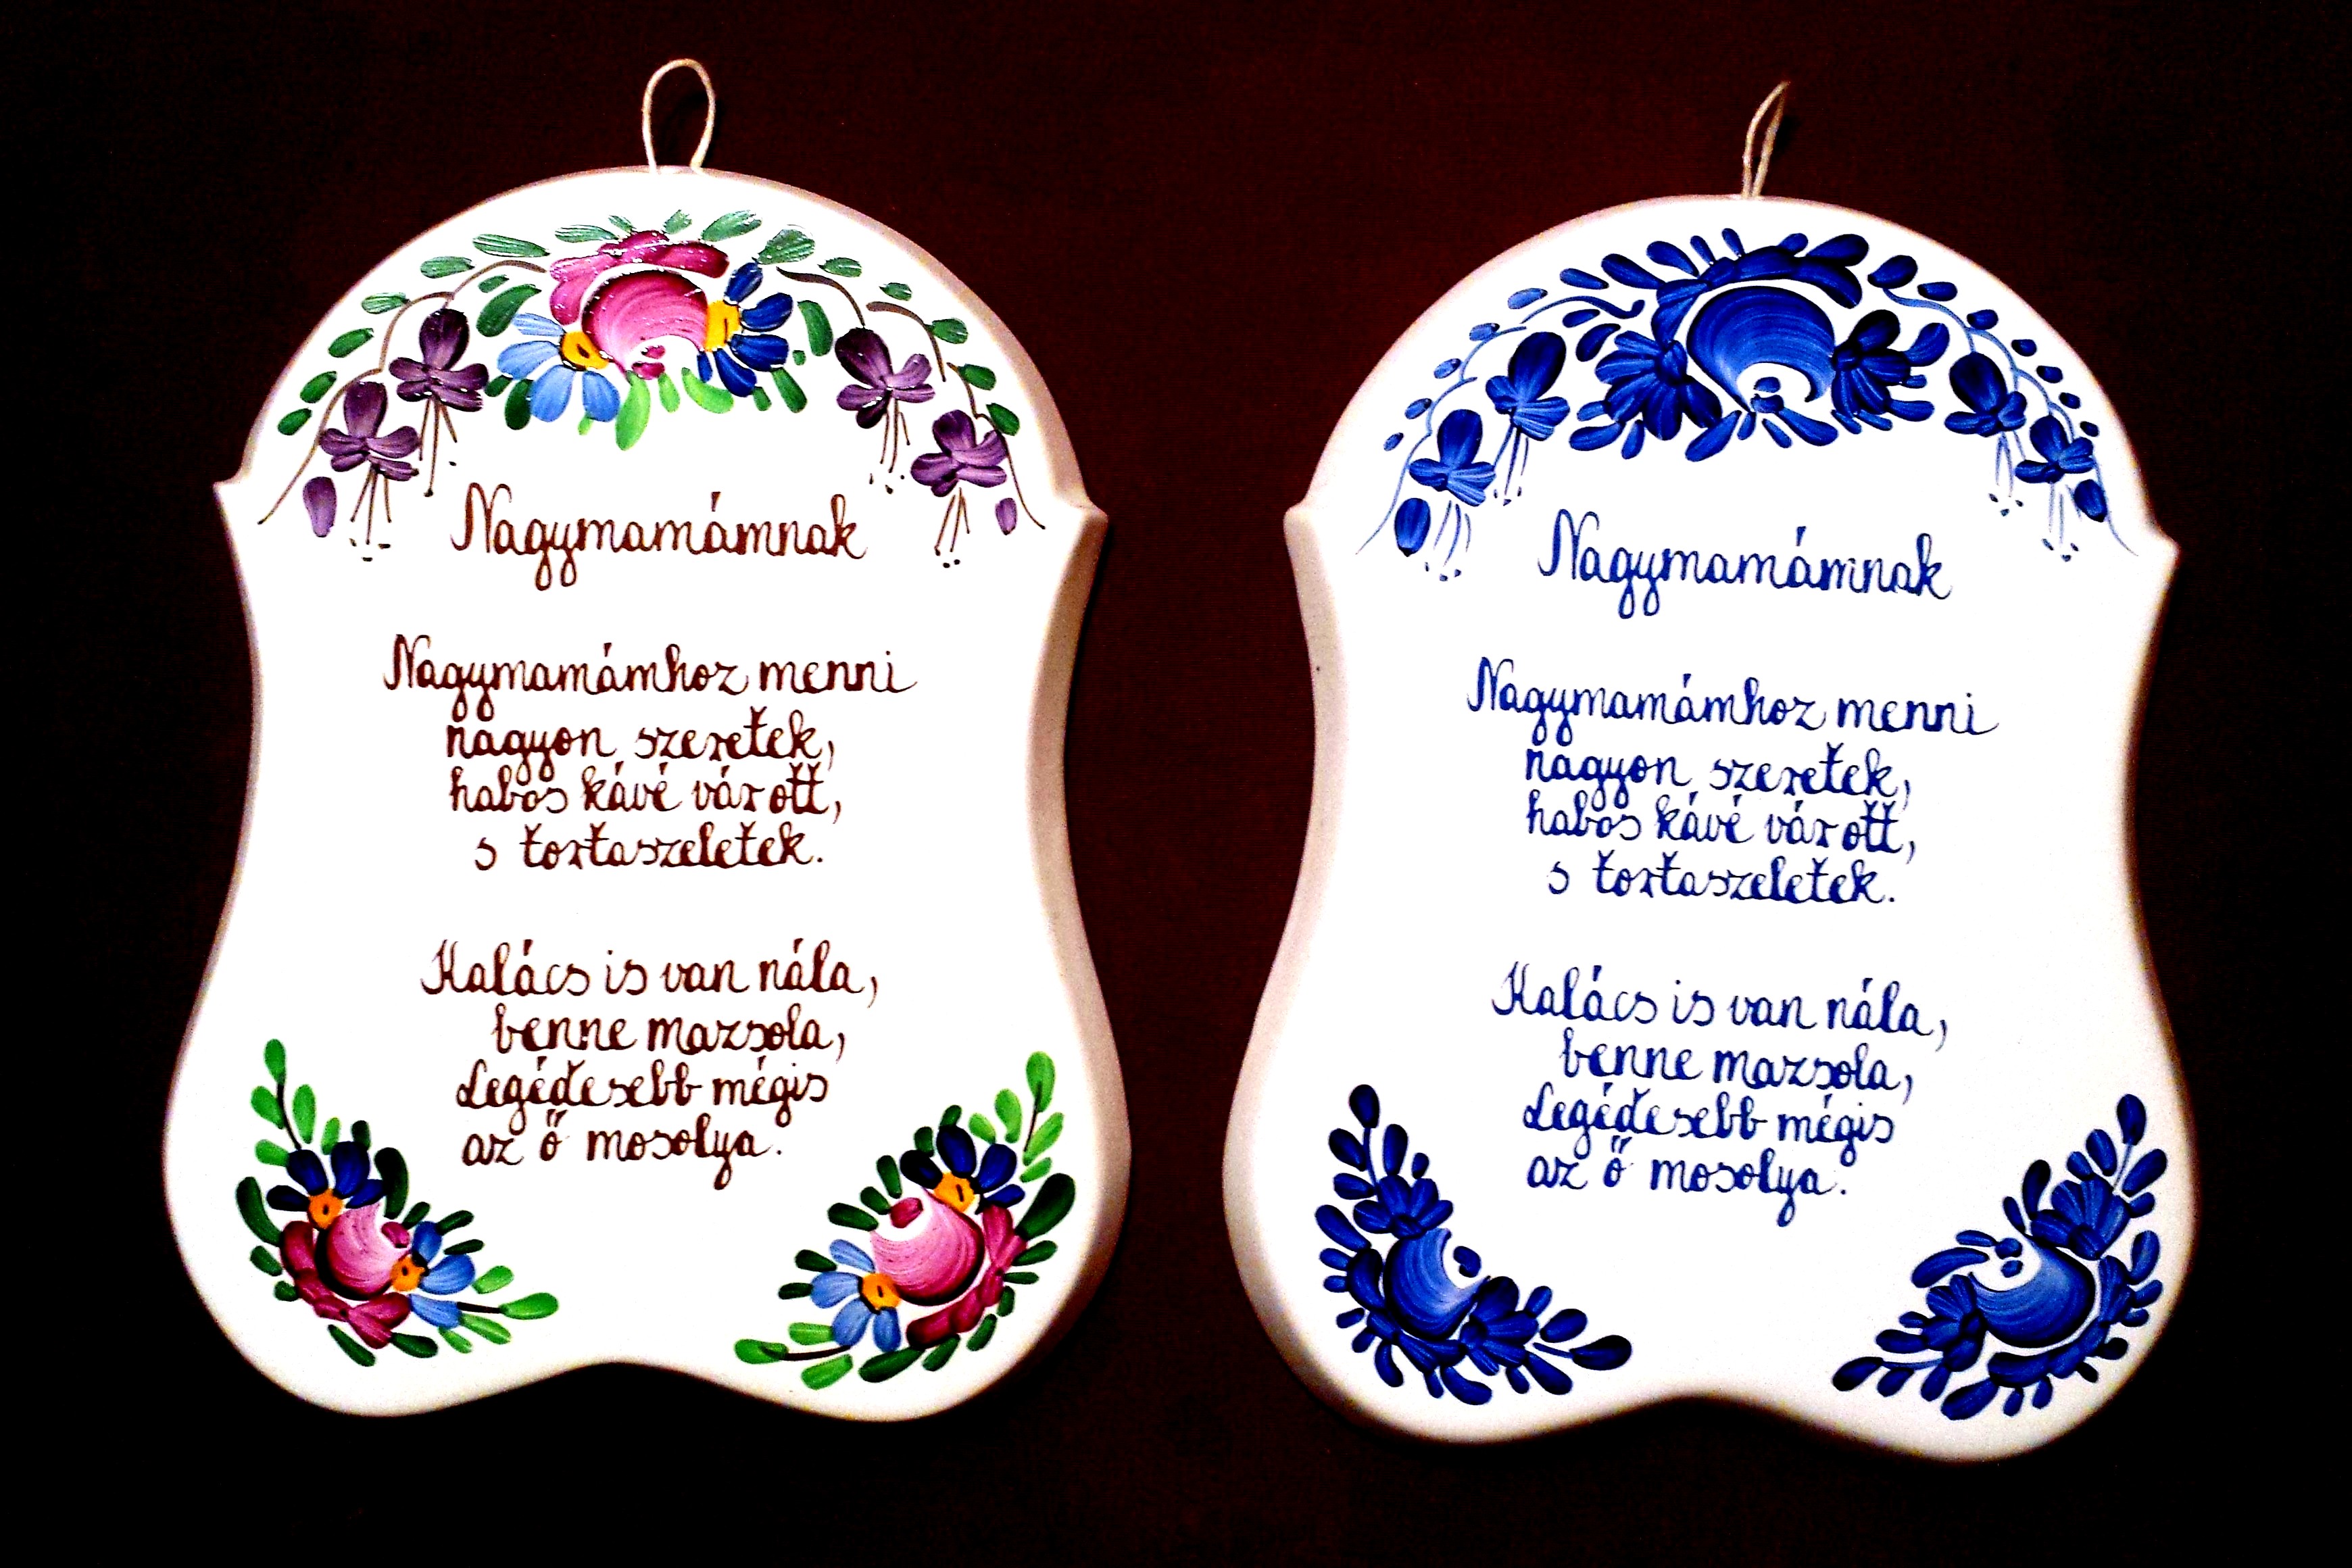 Nagymamámnak
Nagymamámhoz menni
nagyon szeretek,
habos kávé várott,
s tortaszeletek.
Kalács is van nála,
benne mazsola,
Legédesebb mégis
az ő mosolya.
Nagymamámnak
Nagymamámhoz menni
nagyon szeretek,
habos kávé várott,
s tortaszeletek.
Kalács is van nála,
benne mazsola,
Legédesebb mégis
az ő mosolya.